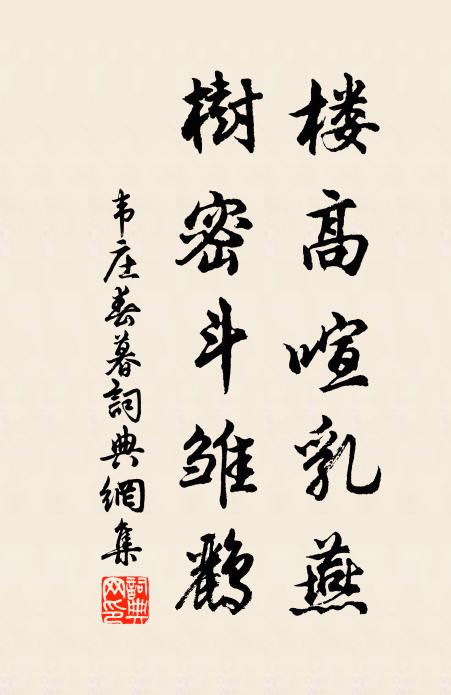 楼高喧乳燕
樹密斗雏鹂
韦庄春暮詞典網集
詞典网印